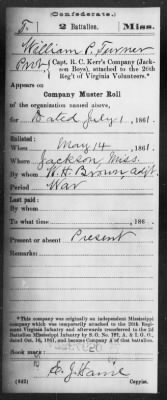 (Confederate.)
T | 2 Battalion. | Miss.
William P. Turner
Pvt | Capt. R. C. Kerr's Company (Jackson Boys), attached to the 26th Reg't of Virginia Volunteers.*
Appears on
Company Muster Roll
of the organization named above,
for Dated July 1, 1861.
Enlisted:
When May 14, 1861.
Where Jackson, Miss.
By whom W. H. Brown adjt.
Period War
Last paid:
By whom
To what time , 186 .
Present or absent Present
Remarks:
*This company was an original independent Mississippi
company which was temporarily attached to the 26th Regiment
Virginia Infantry and afterwards transferred to the 2d
Battalion Mississippi Infantry by S. O. No. 192, A. & I. G. O.,
dated Oct. 16, 1861, and became Company A of that battalion.
Book mark:
(642)
Copyist.